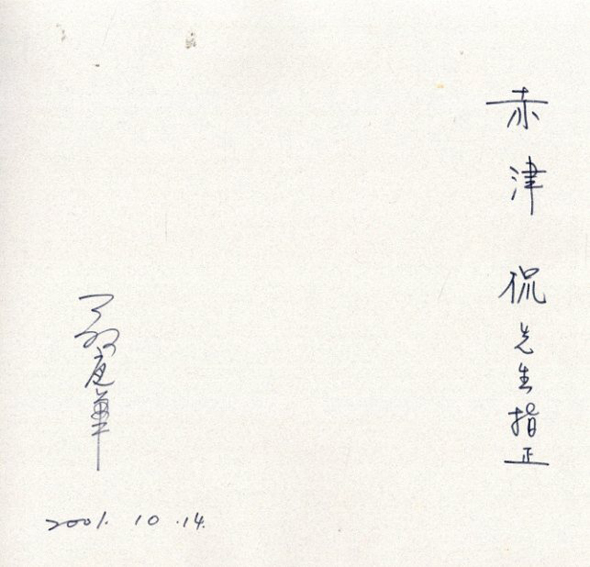 赤津 侃先生指正
庭華
2001. 10 .14.